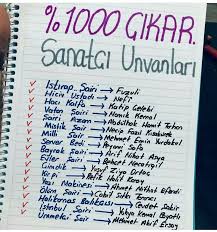 % 1000 ÇIKAR.
Sanatçı Unvanları
Istırap Şairi → Fuzuli
Hiciv Üstadı → Nefi
Hacı Kalfa → Katip Çelebi
Vatan Şairi → Namık Kemal
Şairi Azam → Abdülhak Hamit Tarhan
Mistik Şair → Necip Fazıl Kısakürek
Milli Şair → Mehmet Emin Yurdakul
Server Bedi → Peyami Safa
Bayrak Şairi → Arif Nihat Asya
Evler Şairi → Behçet Necatigil
Çimdik → Yusuf Ziya Ortaç
Kirpi → Refik Halit Karay
Yazı Makinesi → Ahmet Mithat Efendi
Ölüm Şairi → Cahit Sıtkı Tarancı
Halikarnas Balıkçısı → Cevat Şakir
İstanbul Şairi → Yahya Kemal Beyatlı
Ümmetçi Şair → Mehmet Akif Ersoy